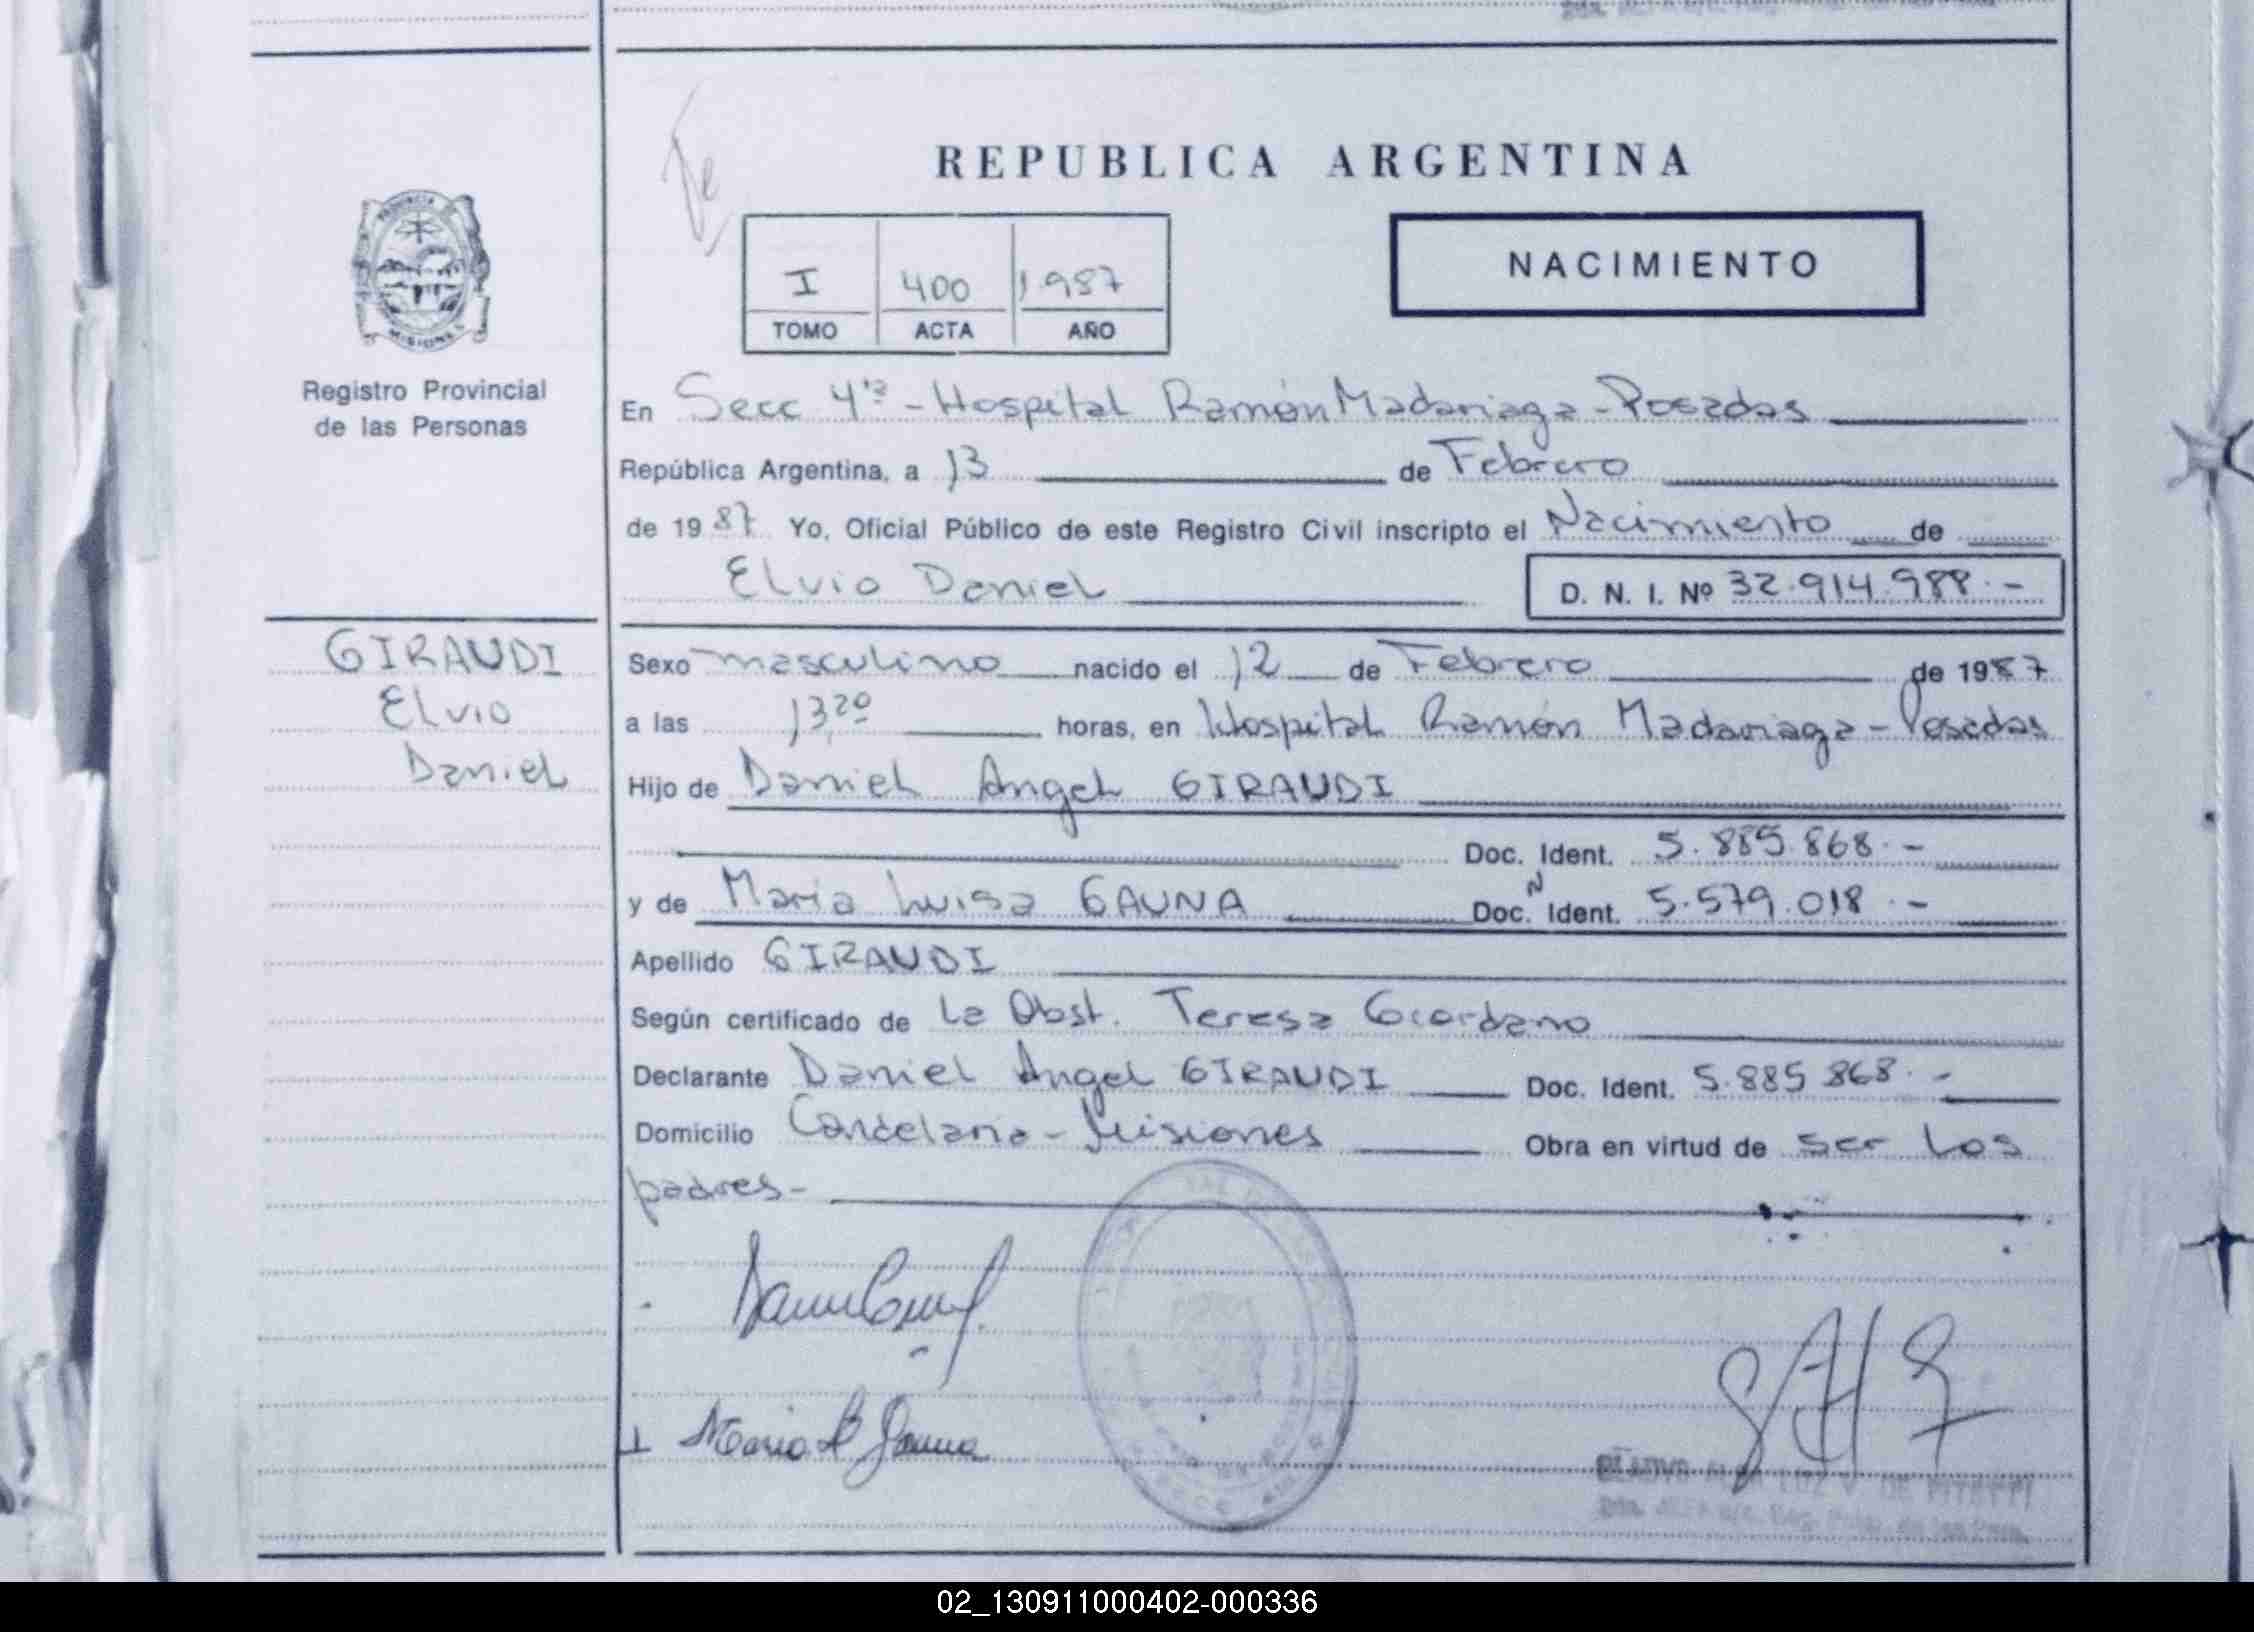 REPUBLICA ARGENTINA
NACIMIENTO
I 400 1.987
TOMO ACTA AÑO
PROVINCIA
MISIONES
Registro Provincial
de las Personas
En Secc 4ta - Hospital Ramón Madariaga - Posadas
República Argentina, a 13 de Febrero
de 1987. Yo, Oficial Público de este Registro Civil inscripto el Nacimiento de
Elvio Daniel D. N. I. Nº 32.914.988.-
GIRAUDI
Elvio
Daniel
Sexo masculino nacido el 12 de Febrero de 1987.
a las 13,20 horas, en Hospital Ramón Madariaga - Posadas
Hijo de Daniel Angel GIRAUDI
Doc. Ident. 5.885.868.-
y de Maria Luisa GAUNA Doc. Ident. N 5.579.018.-
Apellido GIRAUDI
Según certificado de La Obst. Teresa Giordano
Declarante Daniel Angel GIRAUDI Doc. Ident. 5.885.868.-
Domicilio Candelaria - Misiones Obra en virtud de ser los
padres -
Maria L Gauna
02_130911000402-000336